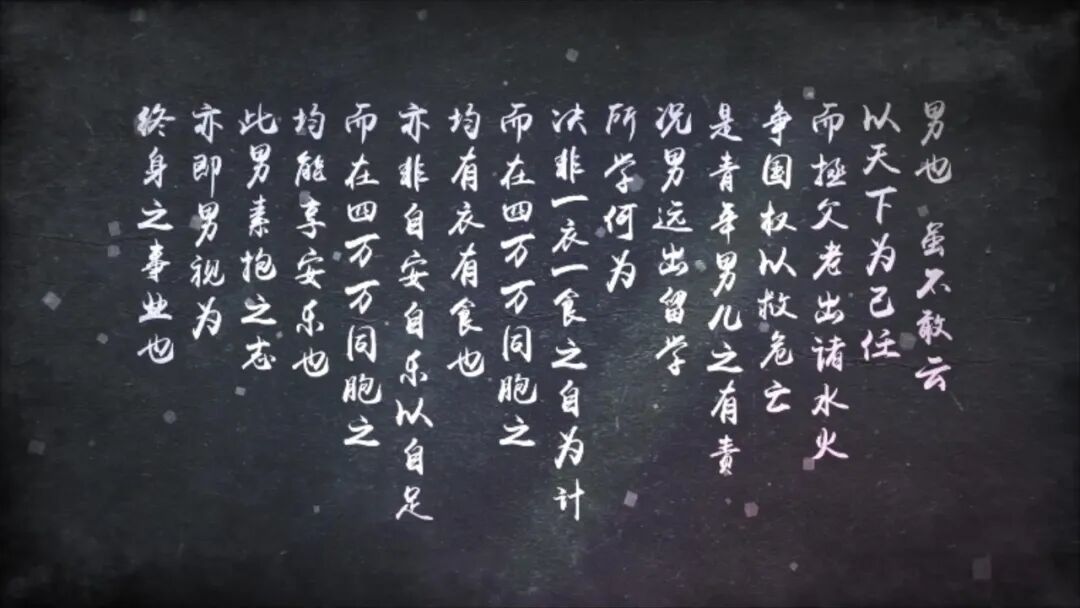 男也 虽不敢云
以天下为己任
而拯父老出诸水火
争国权以救危亡
是青年男儿之有责
况男远出留学
所学何为
决非一衣一食之自为计
而在四万万同胞之
均有衣有食也
亦非自安自乐以自足
而在四万万同胞之
均能享安乐也
此男素抱之志
亦即男视为
终身之事业也